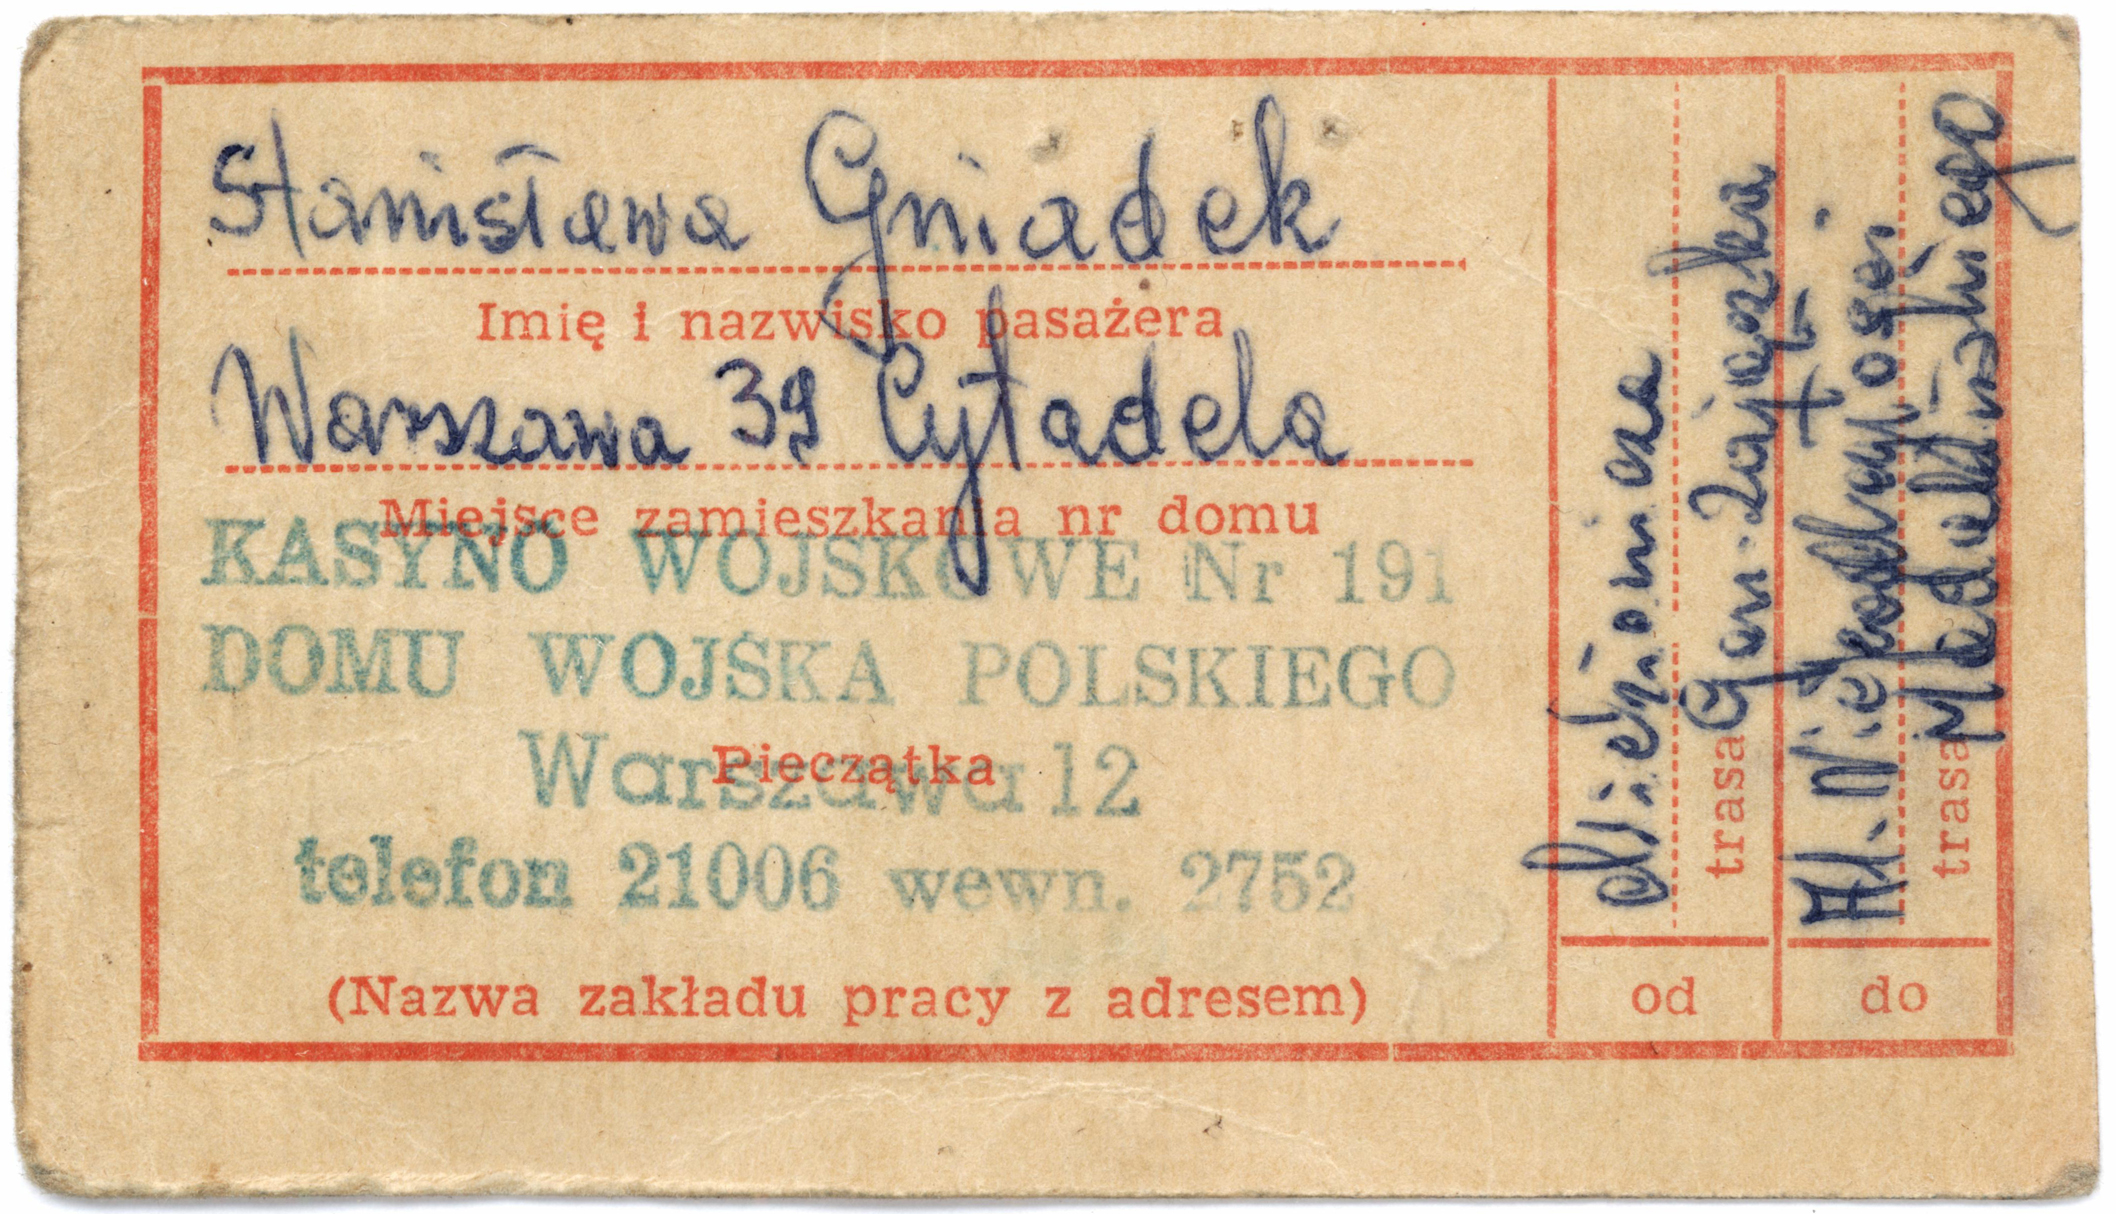 Stanisława Gniadek
Imię i nazwisko pasażera
Warszawa 39 Cytadela
Miejsce zamieszkania nr domu
KASYNO WOJSKOWE Nr 191
DOMU WOJSKA POLSKIEGO
Warszawa 12
Pieczątka
telefon 21006 wewn. 2752
(Nazwa zakładu pracy z adresem)
Gen. Zajączka
trasa
od
Al. Niepodległości
trasa
do